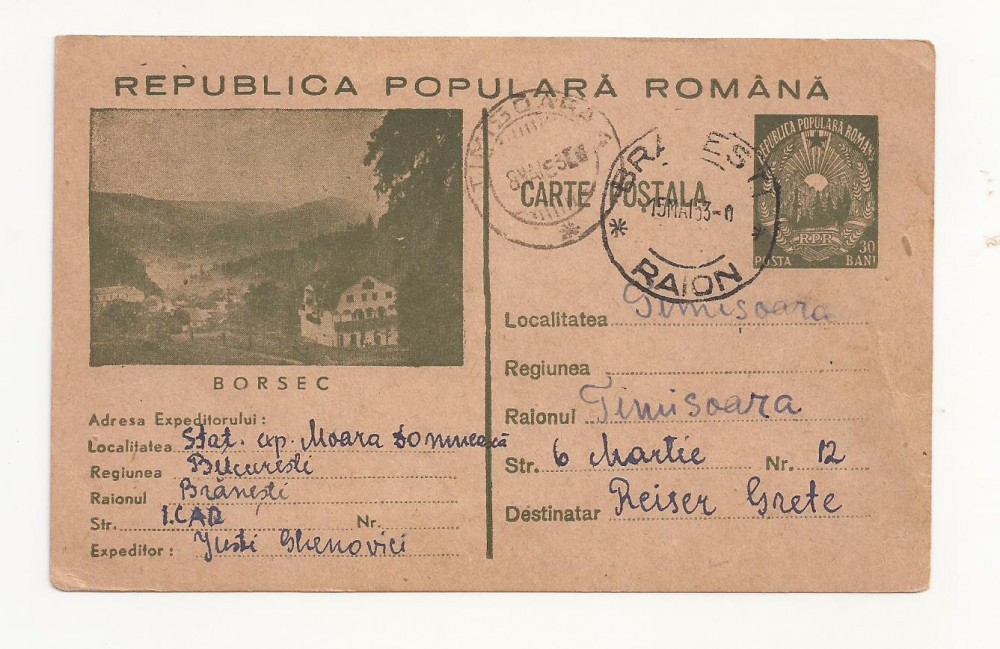 REPUBLICA POPULARĂ ROMÂNĂ
BORSEC
Adresa Expeditorului :
Localitatea Stat. exp. Moara Domnească
Regiunea București
Raionul Brănești
Str. I.CAR Nr.
Expeditor : Justi Ghenovici
TIMISOARA
8 MAI 53
CARTE POSTALA
BRA ESTI
15 MAI 53-0
RAION
REPUBLICA POPULARA ROMANA
RPR
30
POSTA BANI
Localitatea Timisoara
Regiunea
Raionul Timisoara
Str. 6 Martie Nr. 12
Destinatar Reiser Grete